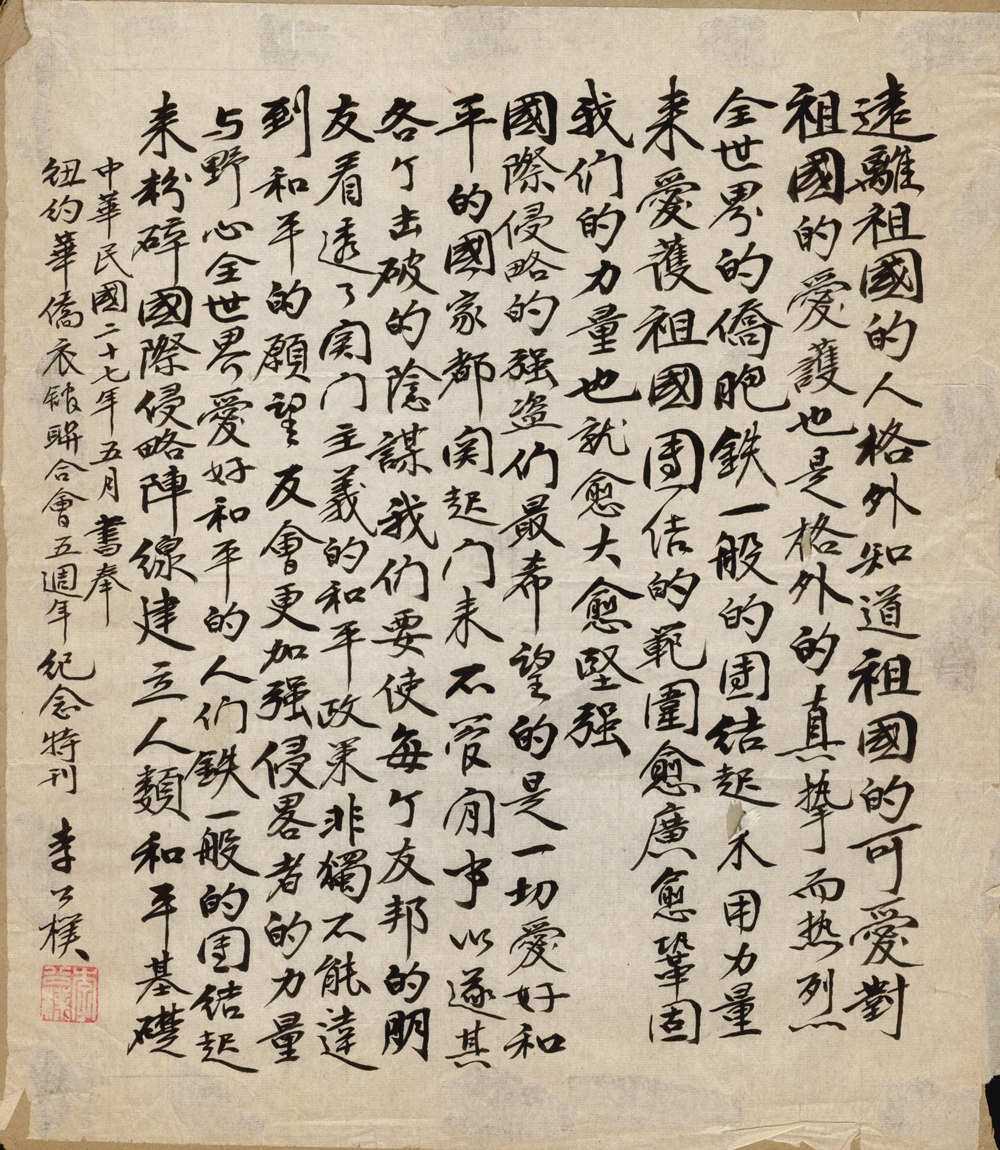 遠離祖國的人格外知道祖國的可愛對
祖國的愛護也是格外的真挚而热烈
全世界的僑胞鉄一般的团結起来用力量
来愛護祖國团结的範圍愈廣愈鞏固
我们的力量也就愈大愈堅强
國際侵略的强盗们最希望的是一切愛好和
平的國家都関起门来不管闲事以遂其
各个击破的陰謀我们要使每个友邦的朋
友看透了関门主義的和平政策非獨不能達
到和平的願望反會更加强侵畧者的力量
与野心全世界愛好和平的人们鉄一般的团结起
来粉碎國際侵略陣線建立人類和平基礎
中華民國二十七年五月書奉
紐約華僑衣館聯合會五週年紀念特刊 李公樸
李公樸